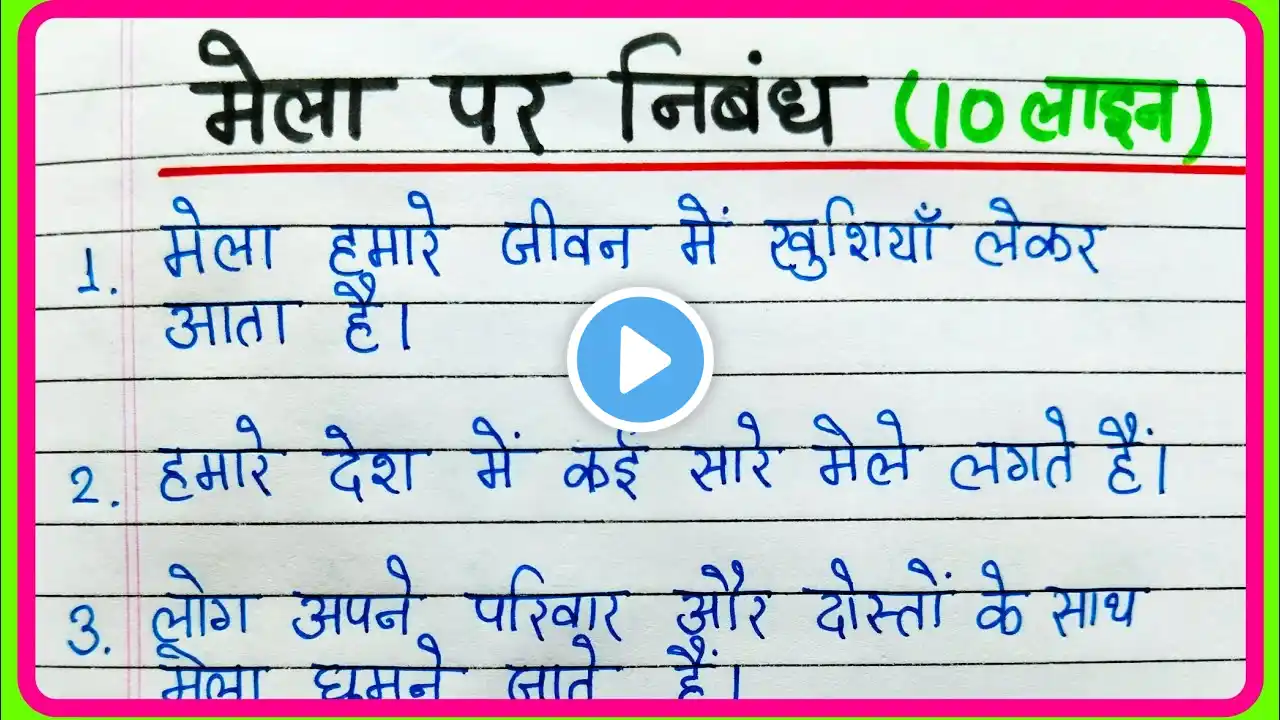 मेला पर निबंध (10 लाइन)
1. मेला हमारे जीवन में खुशियाँ लेकर
आता है।
2. हमारे देश में कई सारे मेले लगते हैं।
3. लोग अपने परिवार और दोस्तों के साथ
मेला घुमने जाते हैं।